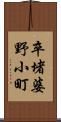 卒堵婆
野小町